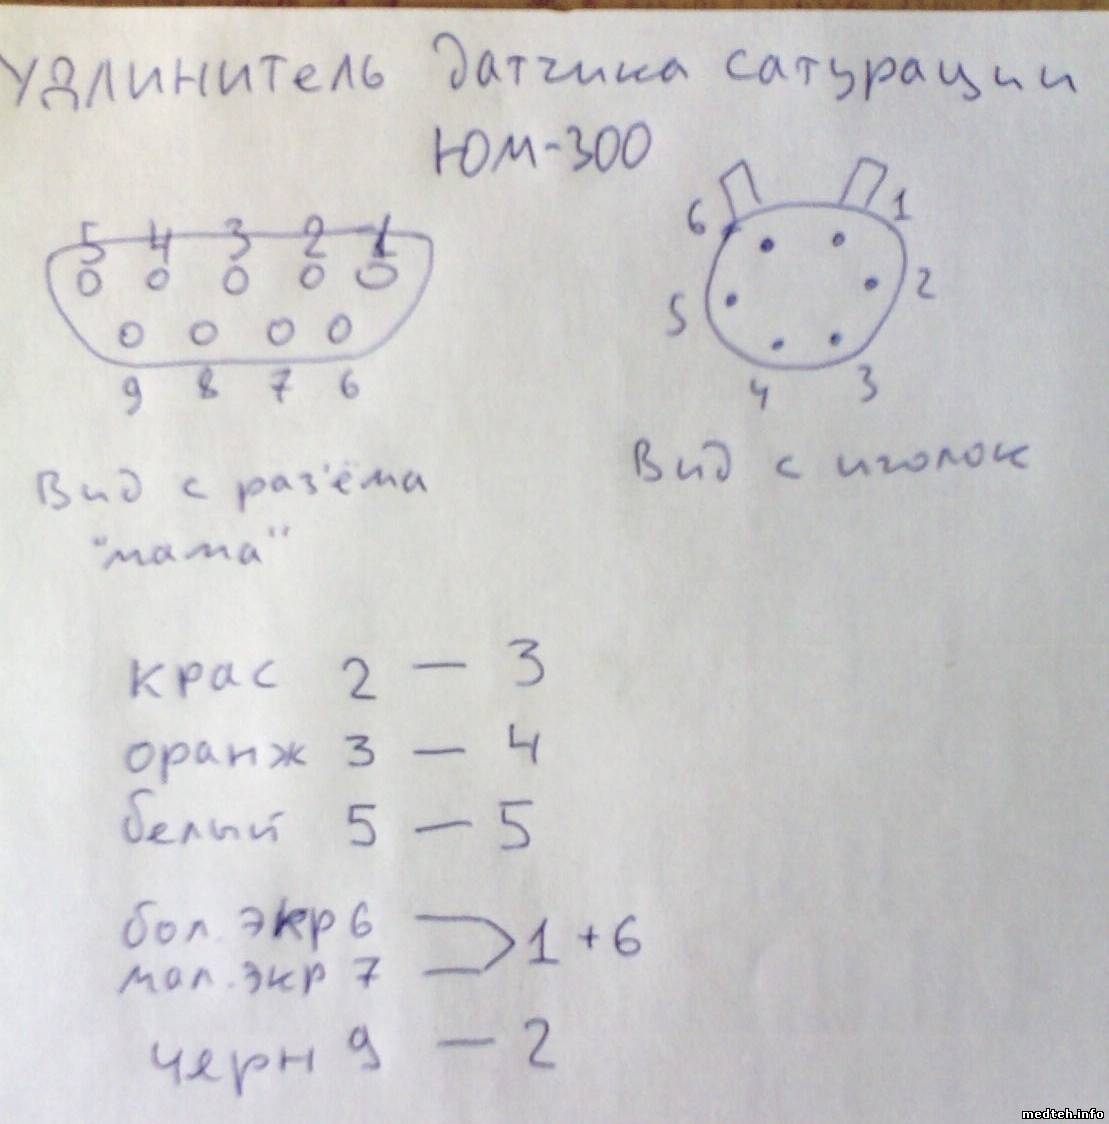 удлинитель датчика сатурации
ЮМ-300
5 4 3 2 1
9 8 7 6
6 1
5 2
4 3
Вид с раз'ёма
"мама"
Вид с иголок
крас 2 — 3
оранж 3 — 4
белый 5 — 5
бол. экр 6
мал. экр 7
1 + 6
черн 9 — 2
medteh.info